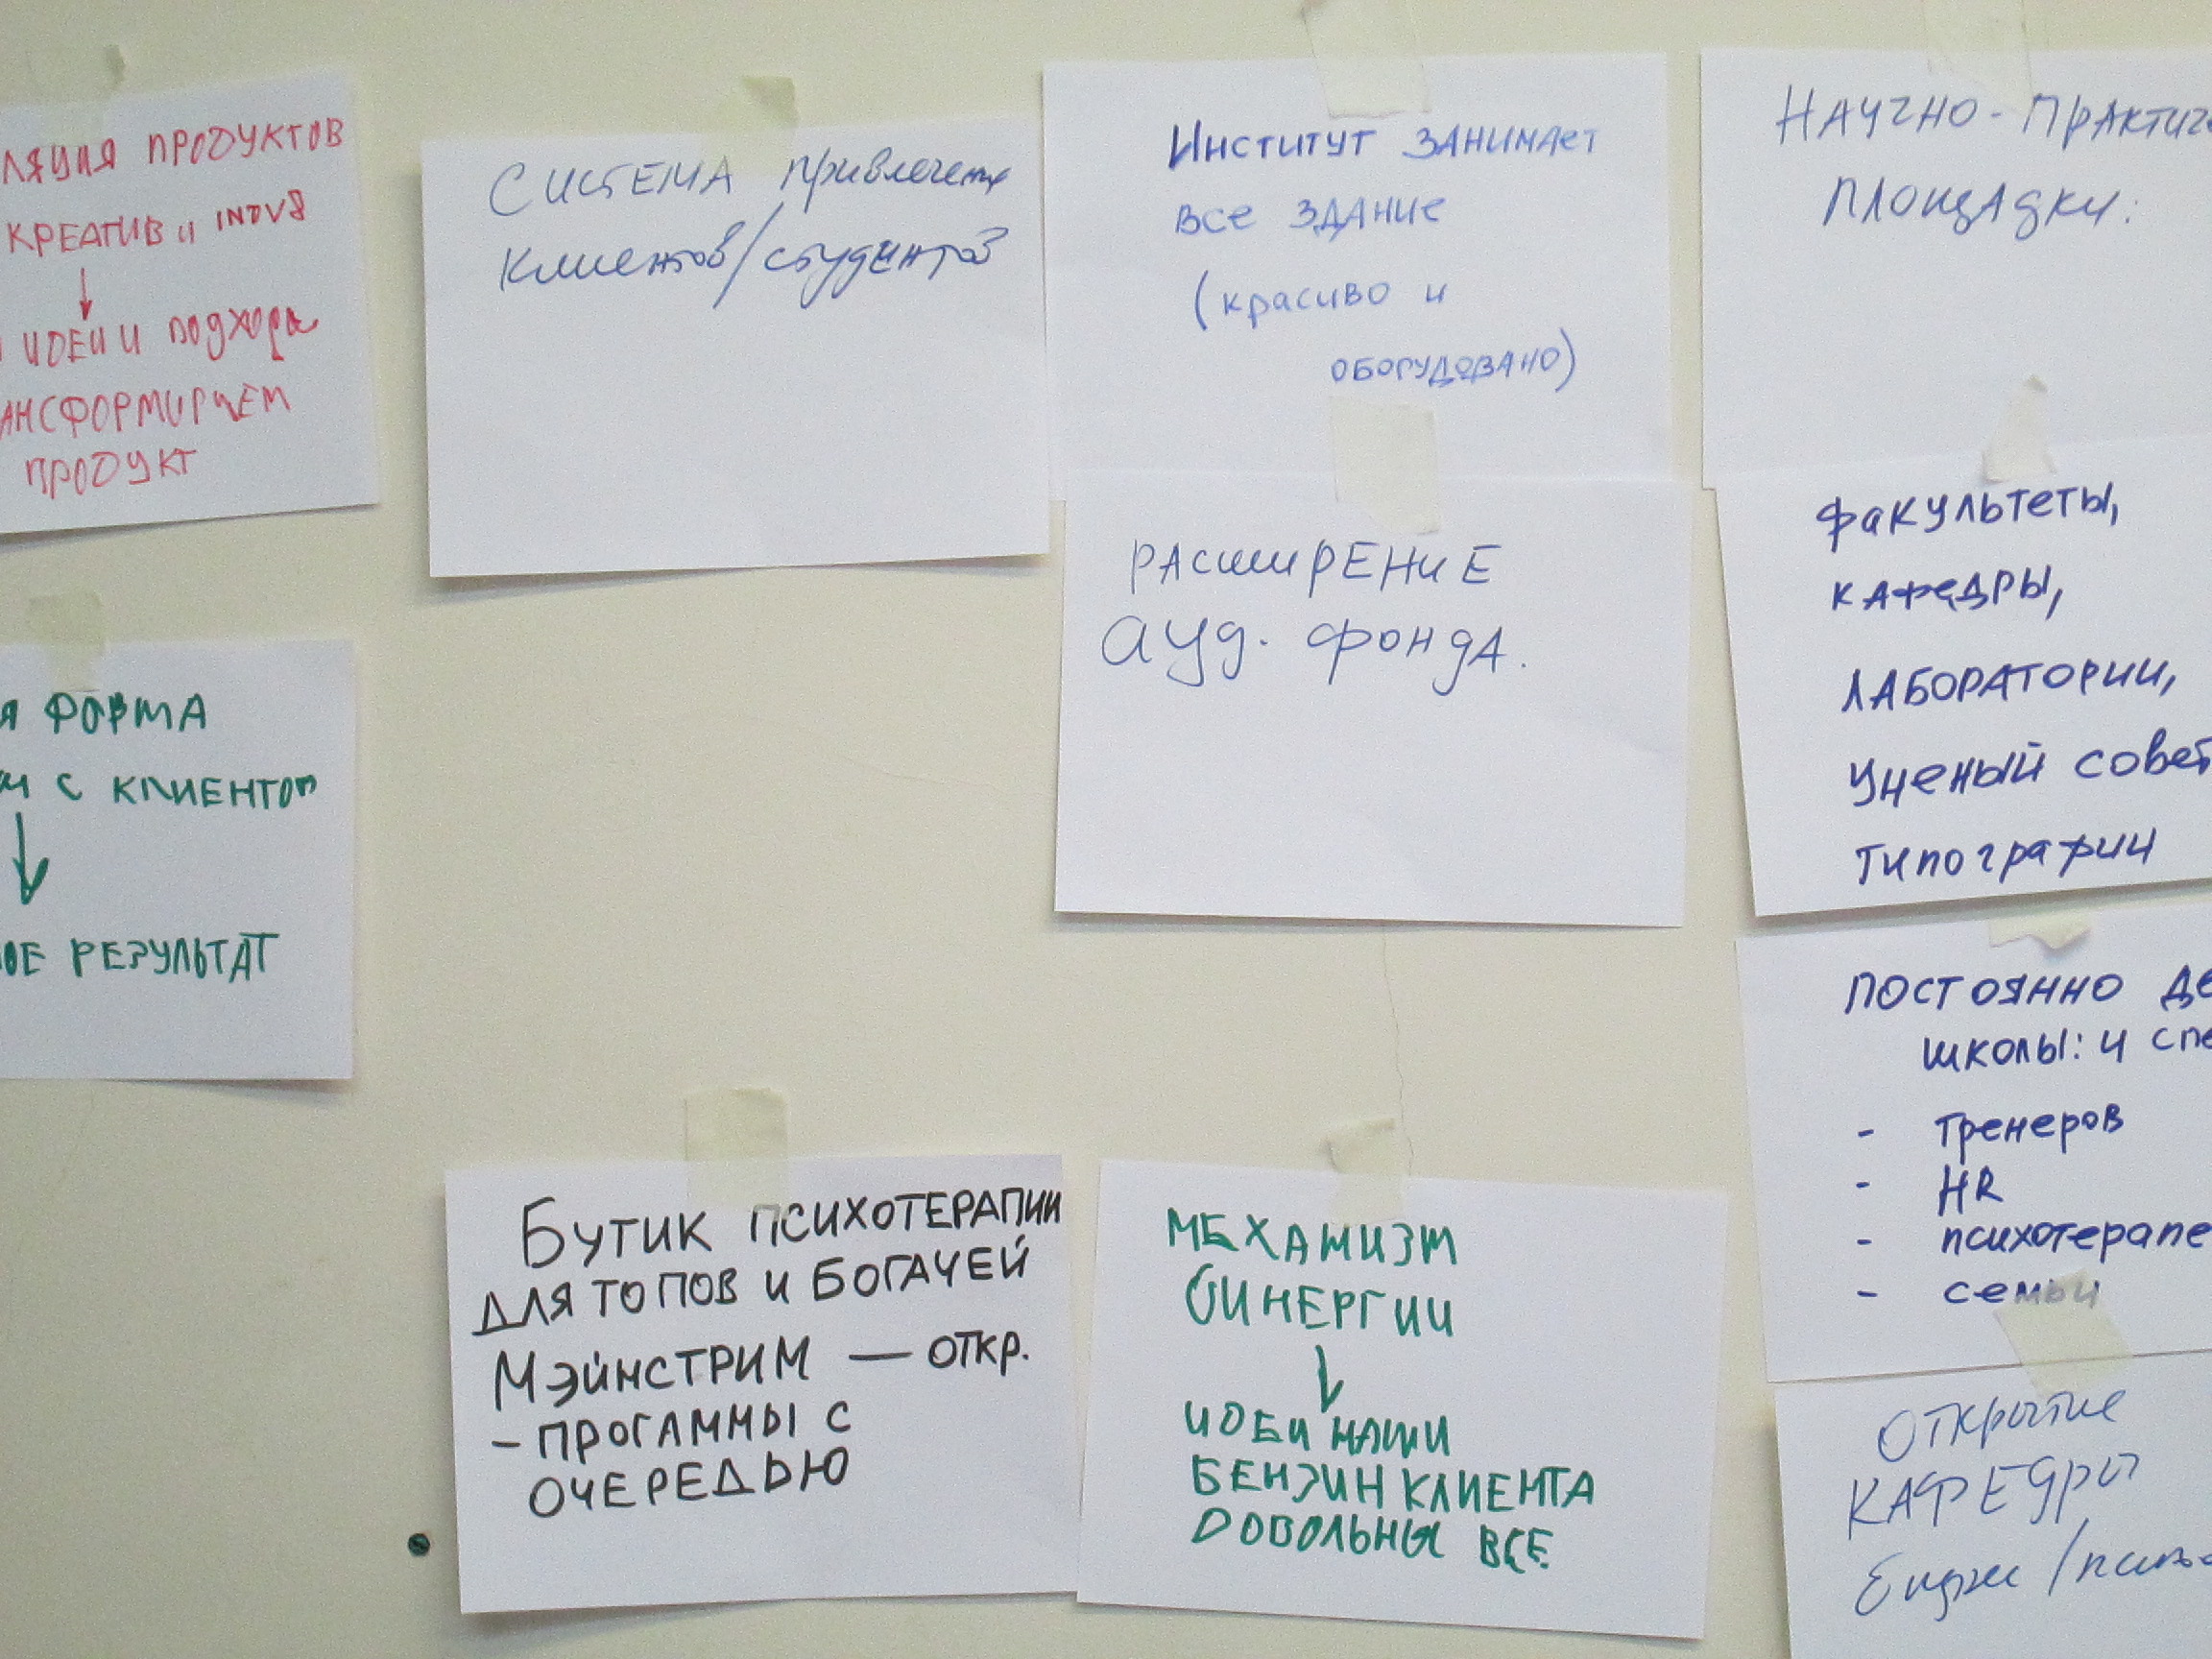 ЛЯЦИЯ ПРОДУКТОВ
КРЕАТИВ И
↓
ИДЕИ И ПОДХОДА
АНСФОРМИРУЕМ
ПРОДУКТ
Я ФОРМА
С КЛИЕНТОМ
↓
ОЕ РЕЗУЛЬТАТ
СИСТЕМА привлечения
клиентов/студентов
Институт занимает
все здание
(красиво и
оборудовано)
РАСШИРЕНИЕ
АУД. ФОНДА.
НАУЧНО-ПРАКТИЧ
ПЛОЩАДКИ:
факультеты,
кафедры,
лаборатории,
ученый совет
типографии
постоянно де
школы: и спе
- тренеров
- HR
- психотерапе
- семьи
Открытие
КАФЕДРЫ
БУТИК ПСИХОТЕРАПИИ
ДЛЯ ТОПОВ И БОГАЧЕЙ
МЭЙНСТРИМ — ОТКР.
- ПРОГАММЫ С
ОЧЕРЕДЬЮ
МЕХАНИЗМ
СИНЕРГИИ
↓
ИДЕИ НАШИ
БЕНЗИН КЛИЕНТА
ДОВОЛЬНЫ ВСЕ